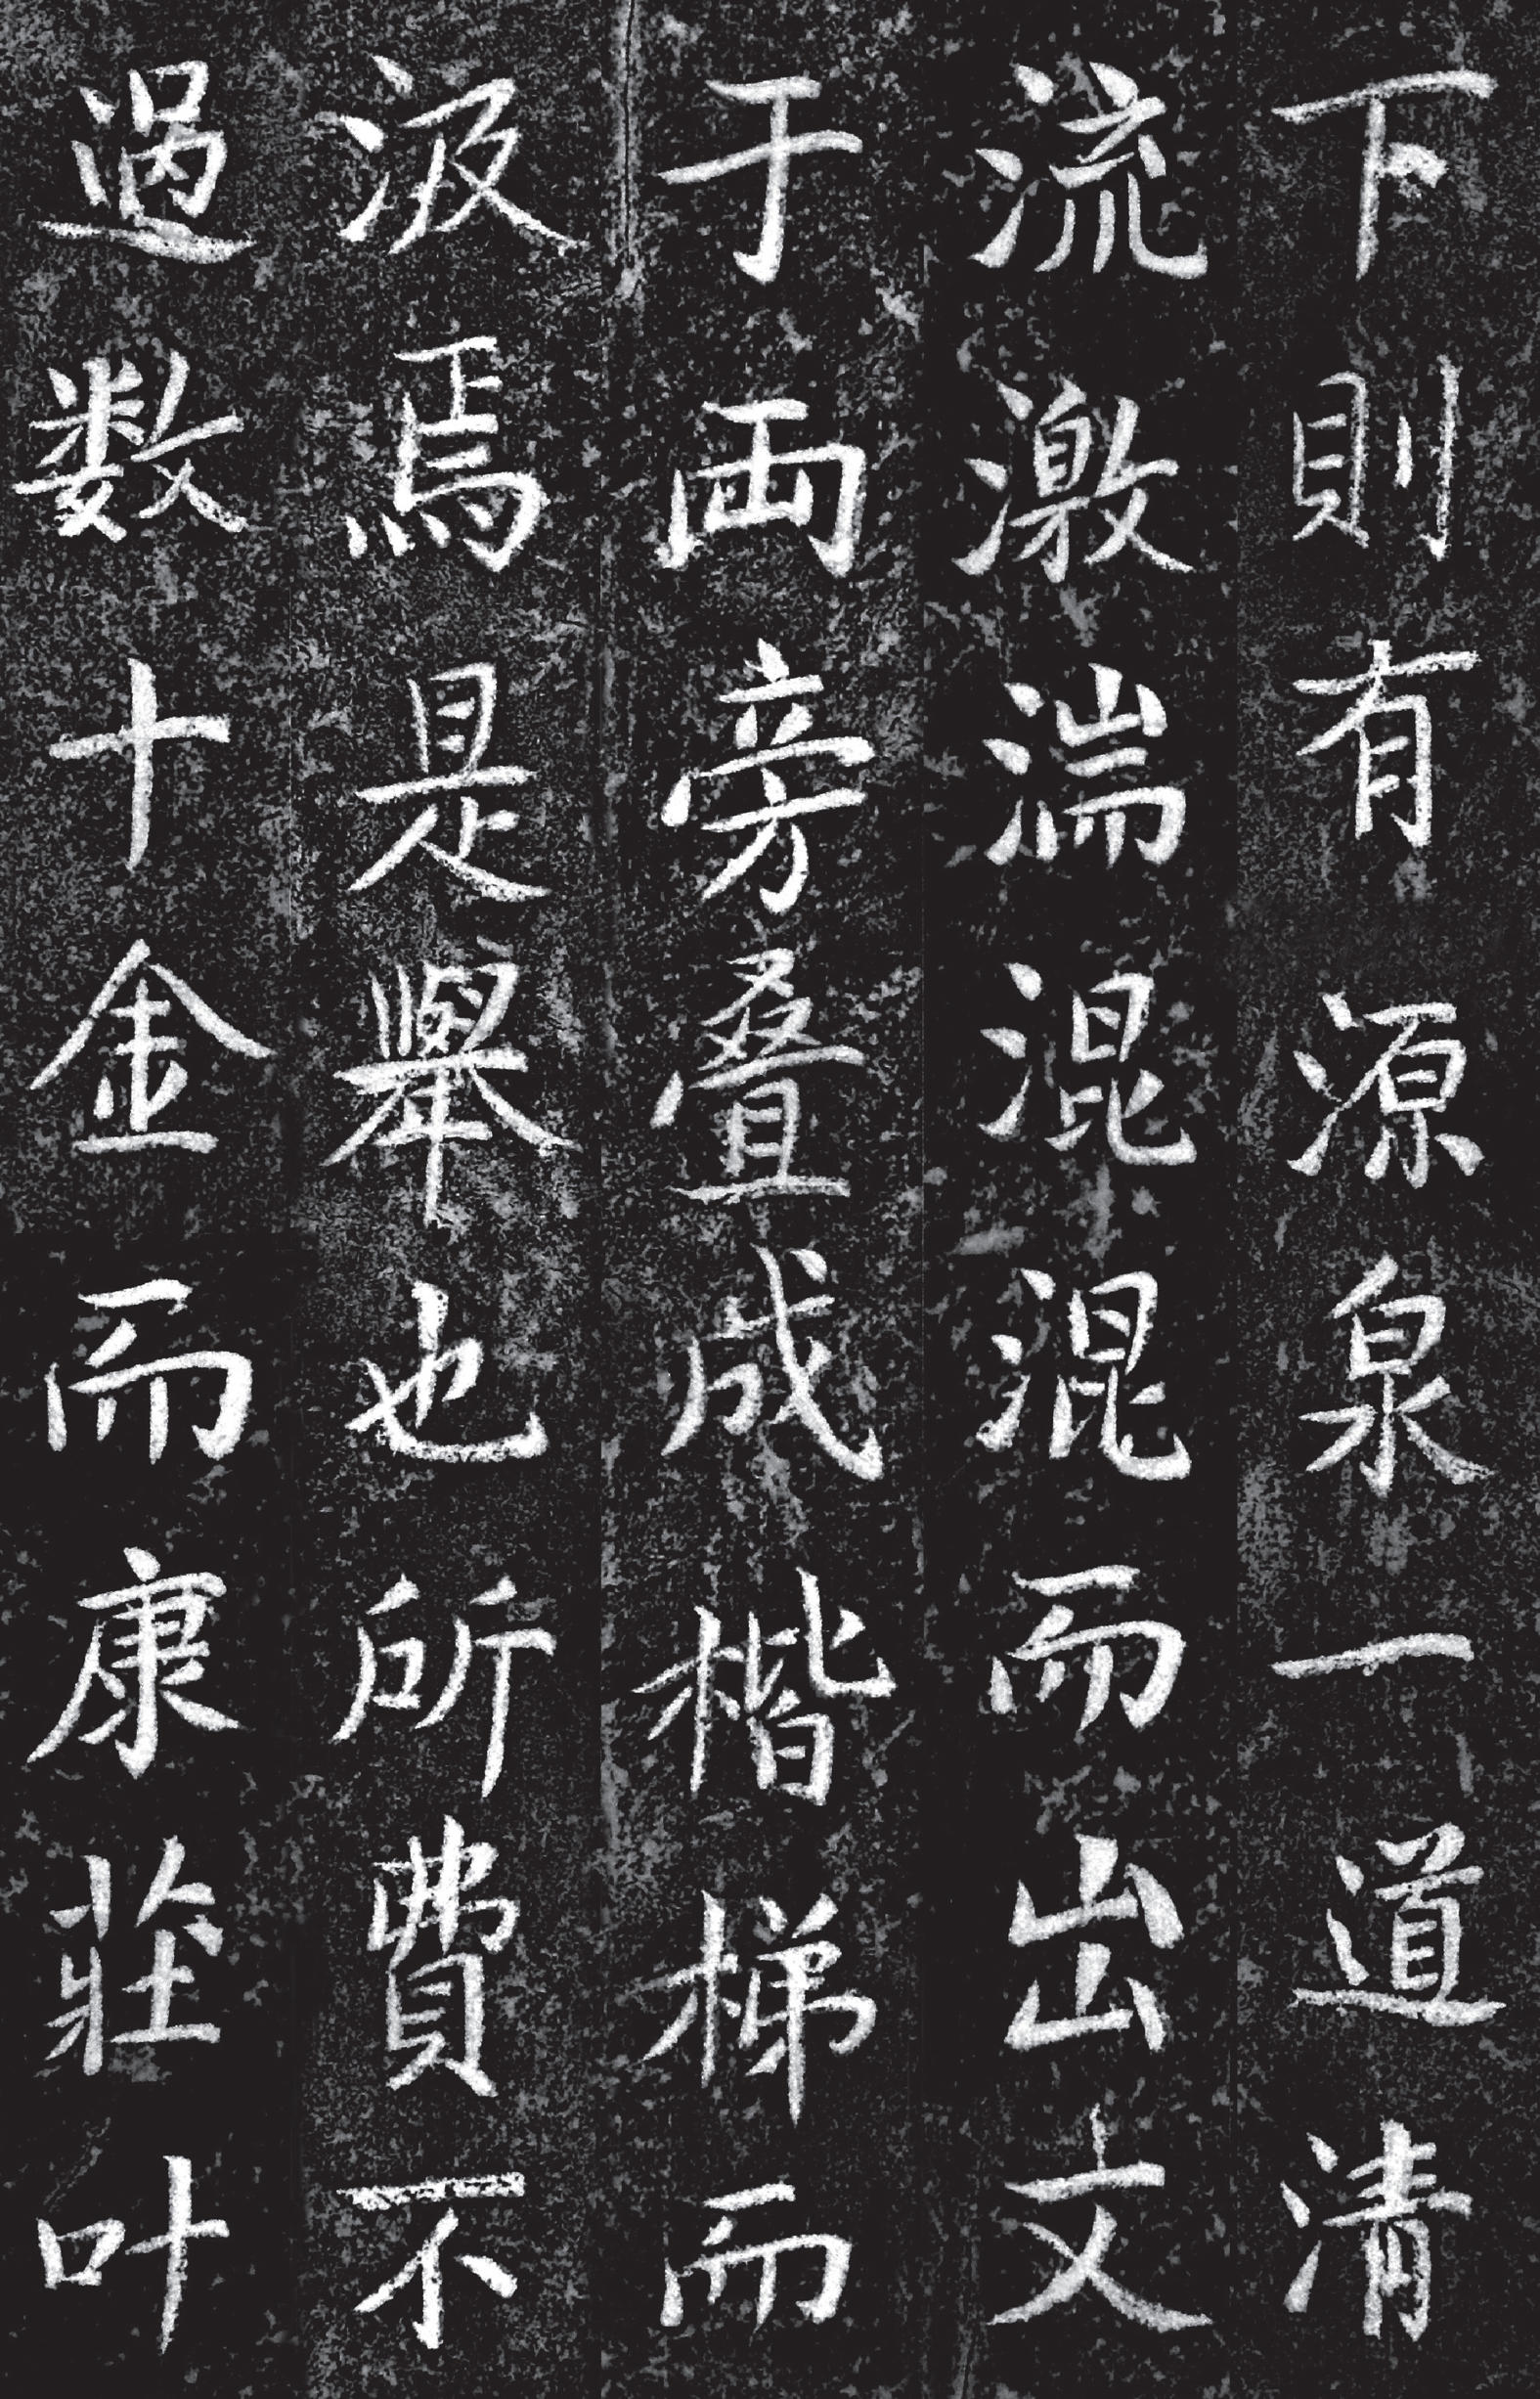 下則有源泉一道清
流激湍混混而出文
于両旁叠成楷梯而
汲焉是舉也所費不
過数十金而康莊叶